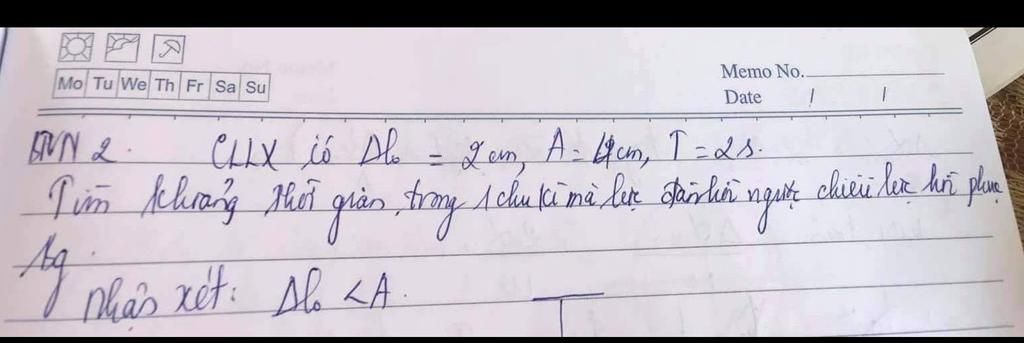 Mo Tu We Th Fr Sa Su
Memo No.
Date / /
BTVN 2. CLLX có Δl₀ = 2cm, A = 4cm, T = 2s.
Tìm khoảng thời gian, trong 1 chu kì mà lực đàn hồi ngược chiều lực hồi phục
Nhận xét: Δl₀ < A.